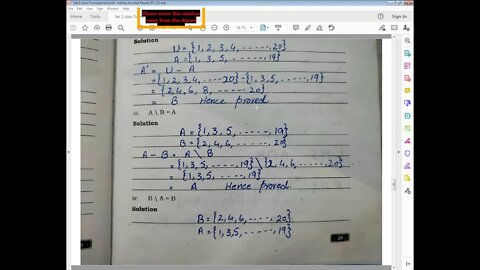 Set 2 class 7
Please move this window
away from the shared
Sign In
Share
Solution
U = {1, 2, 3, 4, ------, 20}
A = {1, 3, 5, ------, 19}
A' = U - A
= {1, 2, 3, 4, -----20} - {1, 3, 5, ------, 19}
= {2, 4, 6, 8, ------ 20}
= B Hence proved
iii. A \ B = A
Solution
A = {1, 3, 5, ------, 19}
B = {2, 4, 6, ------, 20}
A - B = A \ B
= {1, 3, 5, ------, 19} \ {2, 4, 6, -----, 20}
= {1, 3, 5, -----, 19}
= A Hence proved.
iv. B \ A = B
Solution
B = {2, 4, 6, ----, 20}
A = {1, 3, 5, ------, 19}
20